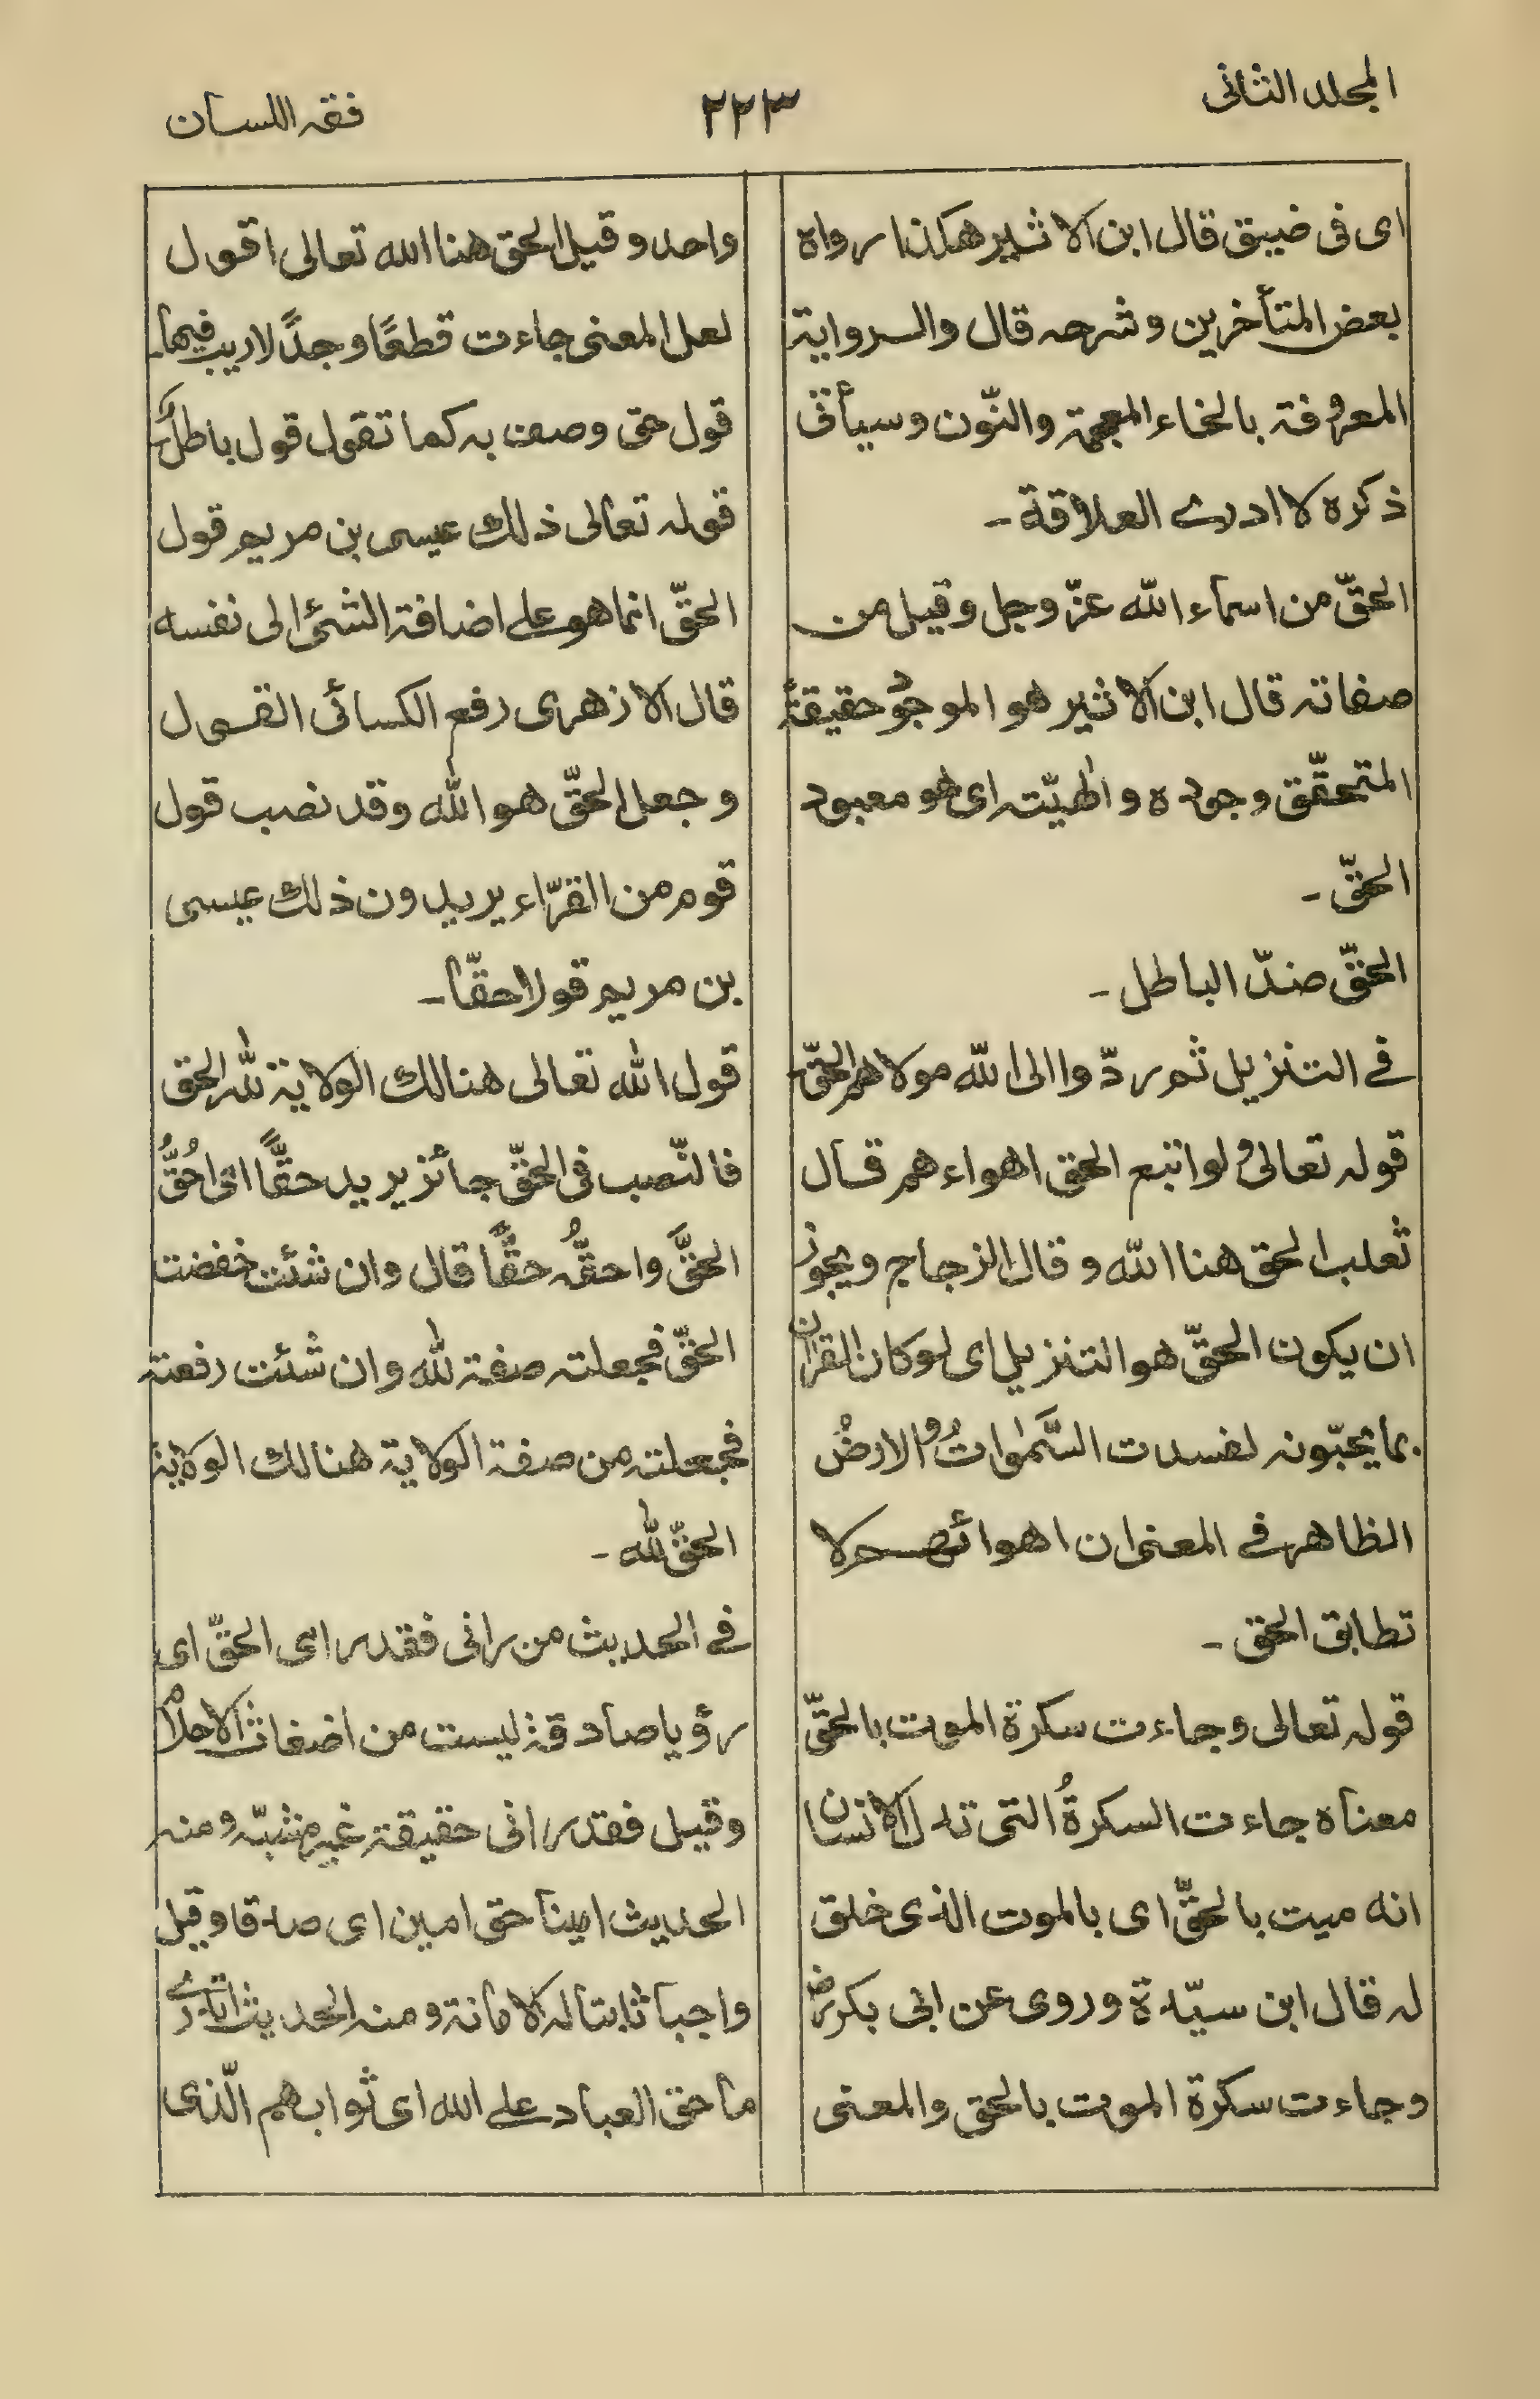 المجلد الثانى
٢٢٣
فقه اللسان
اى فى ضيق قال ابن الاثير هكذا رواه
بعض المتأخرين وشرحه قال والرواية
المعروفة بالخاء المعجمة والنّون وسيأتى
ذكره لا ادرى العلاقة ـ
الحقّ من اسماء الله عزّ وجل وقيل من
صفاته قال ابن الاثير هو الموجود حقيقةً
المتحقّق وجوده والهيّته اى هو معبود
الحقّ ـ
الحقّ ضدّ الباطل ـ
فى التنزيل ثم ردّوا الى الله مولاهم الحقّ ـ
قوله تعالى ولو اتبع الحق اهواءهم قال
ثعلب الحق هنا الله وقال الزجاج ويجوز
ان يكون الحقّ هو التنزيل اى لو كان القران
بما يحبّونه لفسدت السَّمٰوات والارض
الظاهر فى المعنى ان اهوائهم لا
تطابق الحق ـ
قوله تعالى وجاءت سكرة الموت بالحقّ
معناه جاءت السكرةُ التى تدل الانسان
انه ميت بالحقّ اى بالموت الذى خلق
له قال ابن سيّدة وروى عن ابى بكر رض
وجاءت سكرة الموت بالحق والمعنى
واحد وقيل الحق هنا الله تعالى اقول
لعل المعنى جاءت قطعًا وجدًّا لاريب فيها ـ
قول حق وصف به كما تقول قول باطل ـ
قوله تعالى ذلك عيسى بن مريم قول
الحقّ انما هو على اضافة الشئ الى نفسه
قال الازهرى رفع الكسائى القول
وجعل الحقّ هو الله وقد نصب قول
قوم من القرّاء يريدون ذلك عيسى
بن مريم قولا حقّا ـ
قول الله تعالى هنالك الولاية لله الحق
فالنّصب فى الحقّ جائز يريد حقًّا اى اُحُقُّ
الحقَّ واحقُّه حقًّا قال وان شئت خفضت
الحقّ فجعلته صفة لله وان شئت رفعته
فجعلته من صفة الولاية هنالك الولاية
الحقّ لله ـ
فى الحديث من رانى فقد راى الحقّ اى
رؤيا صادقة ليست من اضغاث الاحلام
وقيل فقد رانى حقيقة غير مشبّه ومنه
الحديث امينا حق امين اى صدقا وقيل
واجبا ثابتا له الامانة ومنه الحديث اتدرى
ما حق العباد على الله اى ثوابهم الّذى